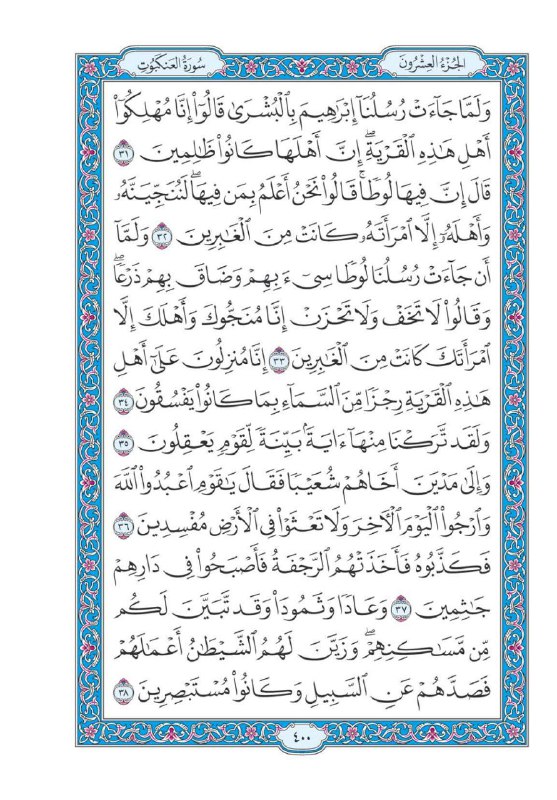 الجُزْءُ العِشْرُونَ
سُورَةُ العَنكَبُوتِ
وَلَمَّا جَآءَتْ رُسُلُنَآ إِبْرَٰهِيمَ بِٱلْبُشْرَىٰ قَالُوٓا۟ إِنَّا مُهْلِكُوٓا۟
أَهْلِ هَٰذِهِ ٱلْقَرْيَةِ ۖ إِنَّ أَهْلَهَا كَانُوا۟ ظَٰلِمِينَ ٣١
قَالَ إِنَّ فِيهَا لُوطًا ۚ قَالُوا۟ نَحْنُ أَعْلَمُ بِمَن فِيهَا ۖ لَنُنَجِّيَنَّهُۥ
وَأَهْلَهُۥٓ إِلَّا ٱمْرَأَتَهُۥ كَانَتْ مِنَ ٱلْغَٰبِرِينَ ٣٢ وَلَمَّآ
أَن جَآءَتْ رُسُلُنَا لُوطًا سِىٓءَ بِهِمْ وَضَاقَ بِهِمْ ذَرْعًا ۖ
وَقَالُوا۟ لَا تَخَفْ وَلَا تَحْزَنْ إِنَّا مُنَجُّوكَ وَأَهْلَكَ إِلَّا
ٱمْرَأَتَكَ كَانَتْ مِنَ ٱلْغَٰبِرِينَ ٣٣ إِنَّا مُنزِلُونَ عَلَىٰٓ أَهْلِ
هَٰذِهِ ٱلْقَرْيَةِ رِجْزًا مِّنَ ٱلسَّمَآءِ بِمَا كَانُوا۟ يَفْسُقُونَ ٣٤
وَلَقَد تَّرَكْنَا مِنْهَآ ءَايَةًۢ بَيِّنَةً لِّقَوْمٍ يَعْقِلُونَ ٣٥
وَإِلَىٰ مَدْيَنَ أَخَاهُمْ شُعَيْبًا فَقَالَ يَٰقَوْمِ ٱعْبُدُوا۟ ٱللَّهَ
وَٱرْجُوا۟ ٱلْيَوْمَ ٱلْءَاخِرَ وَلَا تَعْثَوْا۟ فِى ٱلْأَرْضِ مُفْسِدِينَ ٣٦
فَكَذَّبُوهُ فَأَخَذَتْهُمُ ٱلرَّجْفَةُ فَأَصْبَحُوا۟ فِى دَارِهِمْ
جَٰثِمِينَ ٣٧ وَعَادًا وَثَمُودَا۟ وَقَد تَّبَيَّنَ لَكُم
مِّن مَّسَٰكِنِهِمْ ۖ وَزَيَّنَ لَهُمُ ٱلشَّيْطَٰنُ أَعْمَٰلَهُمْ
فَصَدَّهُمْ عَنِ ٱلسَّبِيلِ وَكَانُوا۟ مُسْتَبْصِرِينَ ٣٨
٤٠٠